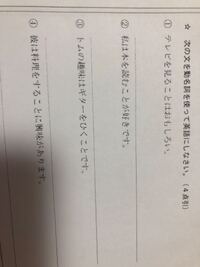 ☆ 次の文を動名詞を使って英語にしなさい。(4点引)
① テレビを見ることはおもしろい。
② 私は本を読むことが好きです。
③ トムの趣味はギターをひくことです。
④ 彼は料理をすることに興味があります。